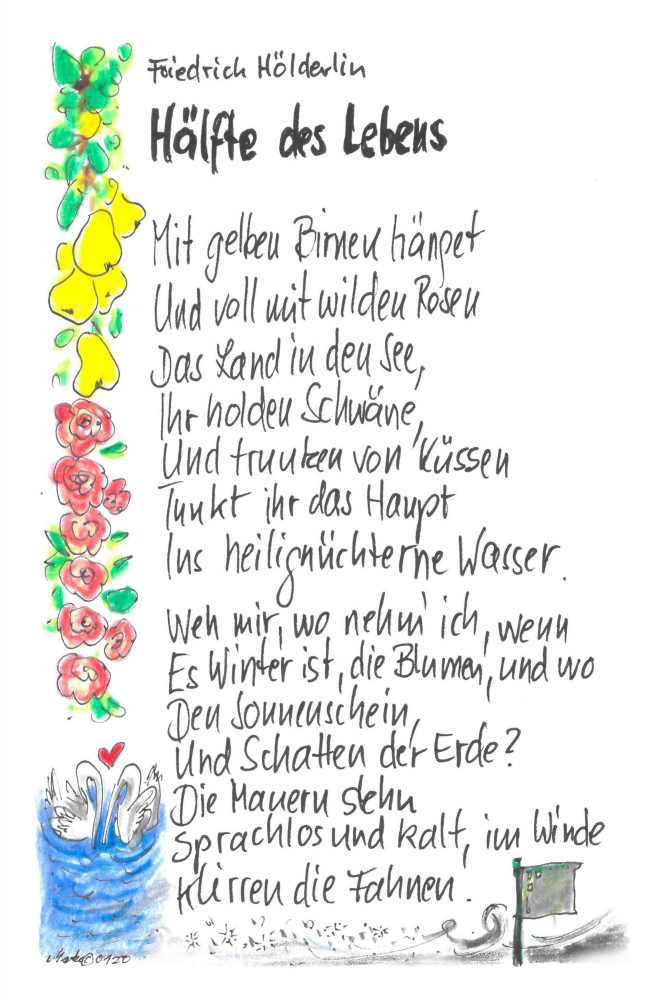 Friedrich Hölderlin
Hälfte des Lebens
Mit gelben Birnen hänget
Und voll mit wilden Rosen
Das Land in den See,
Ihr holden Schwäne,
Und trunken von Küssen
Tunkt ihr das Haupt
Ins heilignüchterne Wasser.
Weh mir, wo nehm' ich, wenn
Es Winter ist, die Blumen, und wo
Den Sonnenschein,
Und Schatten der Erde?
Die Mauern stehn
Sprachlos und kalt, im Winde
Klirren die Fahnen.
©0120